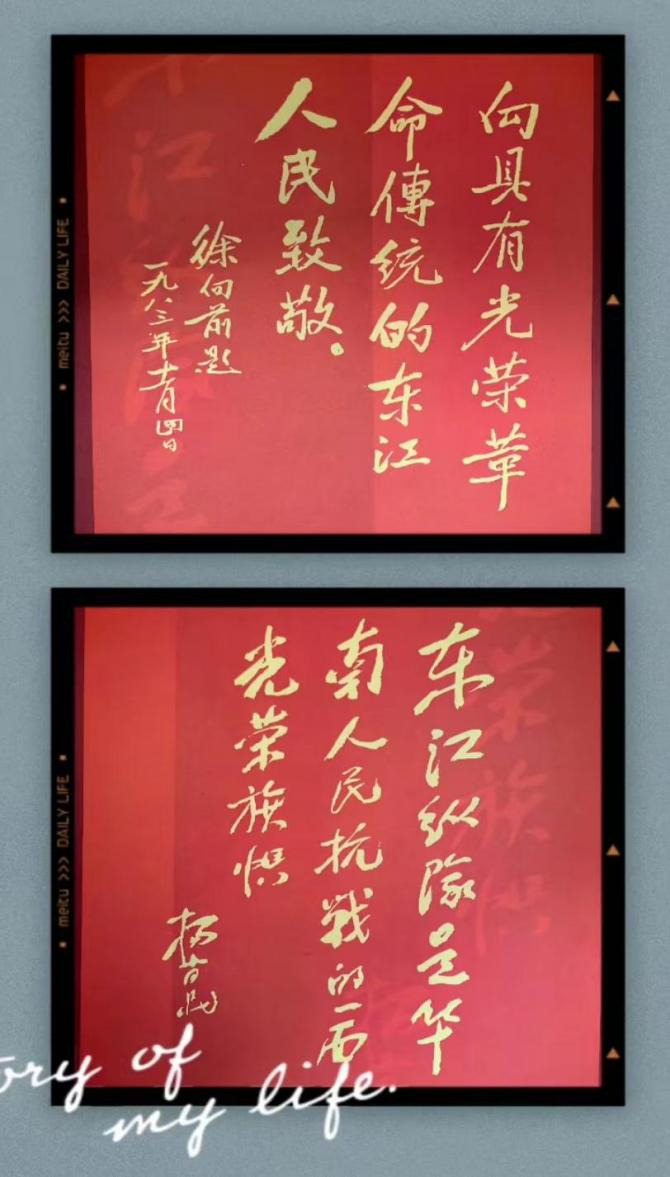 向具有光荣革
命傳统的东江
人民致敬。
徐向前题
一九八三年十一月四日
meitu >>> DAILY LIFE
东江纵队是华
南人民抗战的一面
光荣旗帜
杨尚昆
meitu >>> DAILY LIFE
ory of
my life.